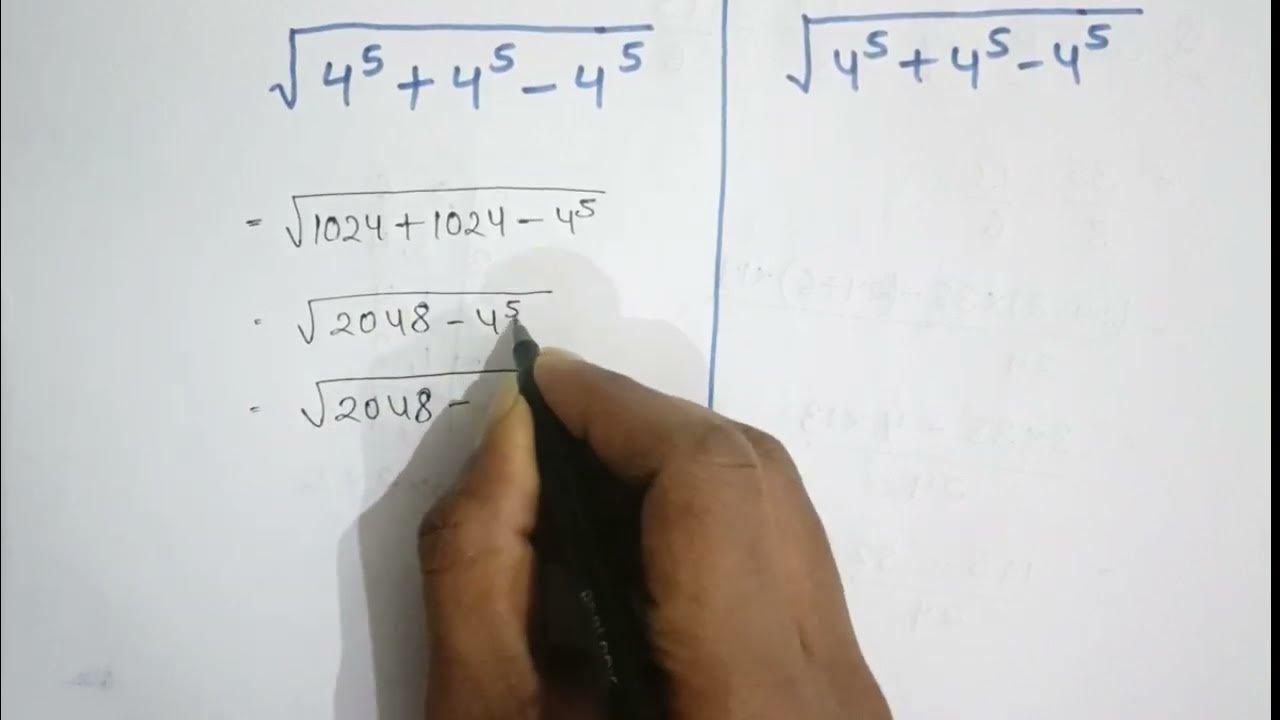 √4⁵ + 4⁵ - 4⁵
= √1024 + 1024 - 4⁵
= √2048 - 4⁵
= √2048 -
√4⁵ + 4⁵ - 4⁵